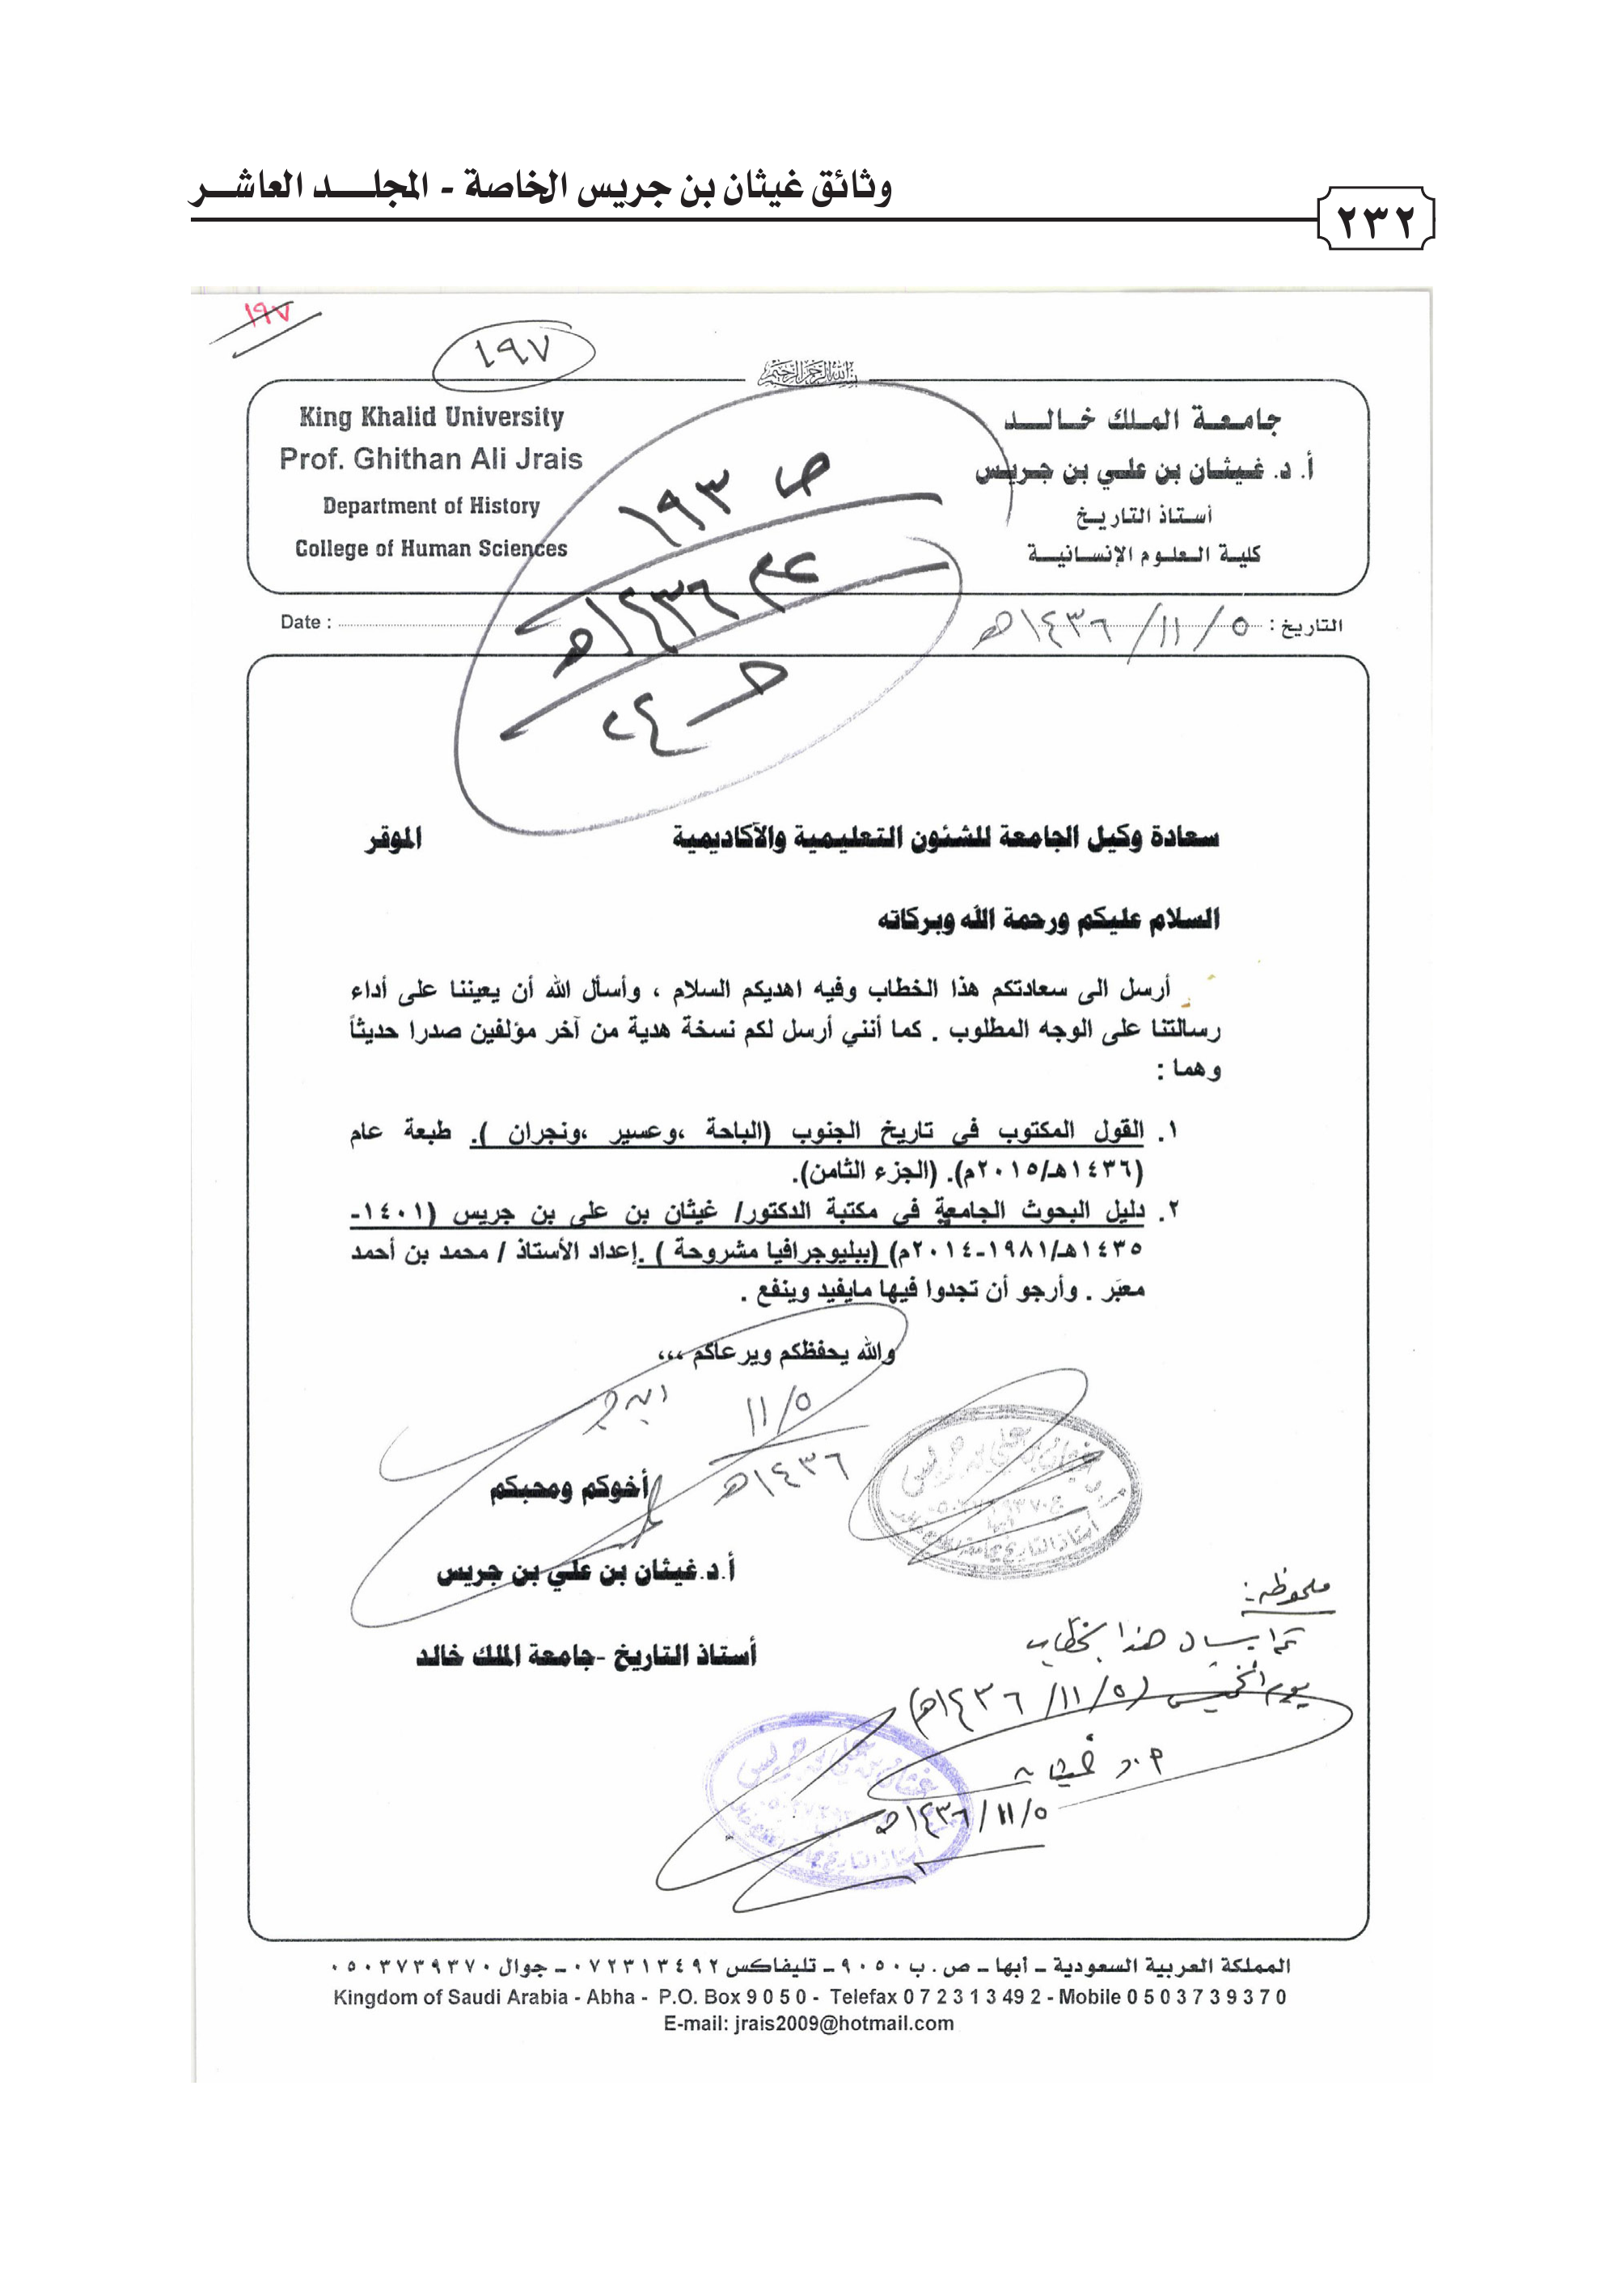 وثائق غيثان بن جريس الخاصة - المجلـــد العاشـــر
٢٣٢
١٩٧
١٩٧
بسم الله الرحمن الرحيم
King Khalid University
Prof. Ghithan Ali Jrais
Department of History
College of Human Sciences
جامعـة الملك خـالــد
أ. د. غيثـان بن علـي بن جـريس
أسـتاذ التاريـخ
كلية العلـوم الإنسـانيـة
ص ١٩٣
عام ١٤٣٦هـ
Date :
التاريخ : ٥ / ١١ / ١٤٣٦هـ
سعادة وكيل الجامعة للشئون التعليمية والآكاديمية الموقر
السلام عليكم ورحمة الله وبركاته
أرسل الى سعادتكم هذا الخطاب وفيه اهديكم السلام ، وأسأل الله أن يعيننا على أداء
رسالتنا على الوجه المطلوب . كما أنني أرسل لكم نسخة هدية من آخر مؤلفين صدرا حديثاً
وهما :
١. القول المكتوب في تاريخ الجنوب (الباحة ،وعسير ،ونجران ). طبعة عام
(١٤٣٦هـ/٢٠١٥م). (الجزء الثامن).
٢. دليل البحوث الجامعية في مكتبة الدكتور/ غيثان بن على بن جريس (١٤٠١-
١٤٣٥هـ/١٩٨١-٢٠١٤م) (ببليوجرافيا مشروحة ) .إعداد الأستاذ / محمد بن أحمد
معبَر . وأرجو أن تجدوا فيها مايفيد وينفع .
والله يحفظكم ويرعاكم ،،،
٥/ ١١
١٤٣٦هـ
أخوكم ومحبكم
أ.د.غيثان بن علي بن جريس
أستاذ التاريخ -جامعة الملك خالد
ملحوظة:
تم ارسال هذا الخطاب
يوم الخميس (٥/ ١١/ ١٤٣٦هـ)
أ.د غيثان
٥/ ١١/ ١٤٣٦هـ
المملكة العربية السعودية ـ أبها ـ ص . ب ٩٠٥٠ ـ تليفاكس ٠٧٢٣١٣٤٩٢ ـ جوال ٠٥٠٣٧٣٩٣٧٠
Kingdom of Saudi Arabia - Abha - P.O. Box 9 0 5 0 - Telefax 0 7 2 3 1 3 49 2 - Mobile 0 5 0 3 7 3 9 3 7 0
E-mail: jrais2009@hotmail.com